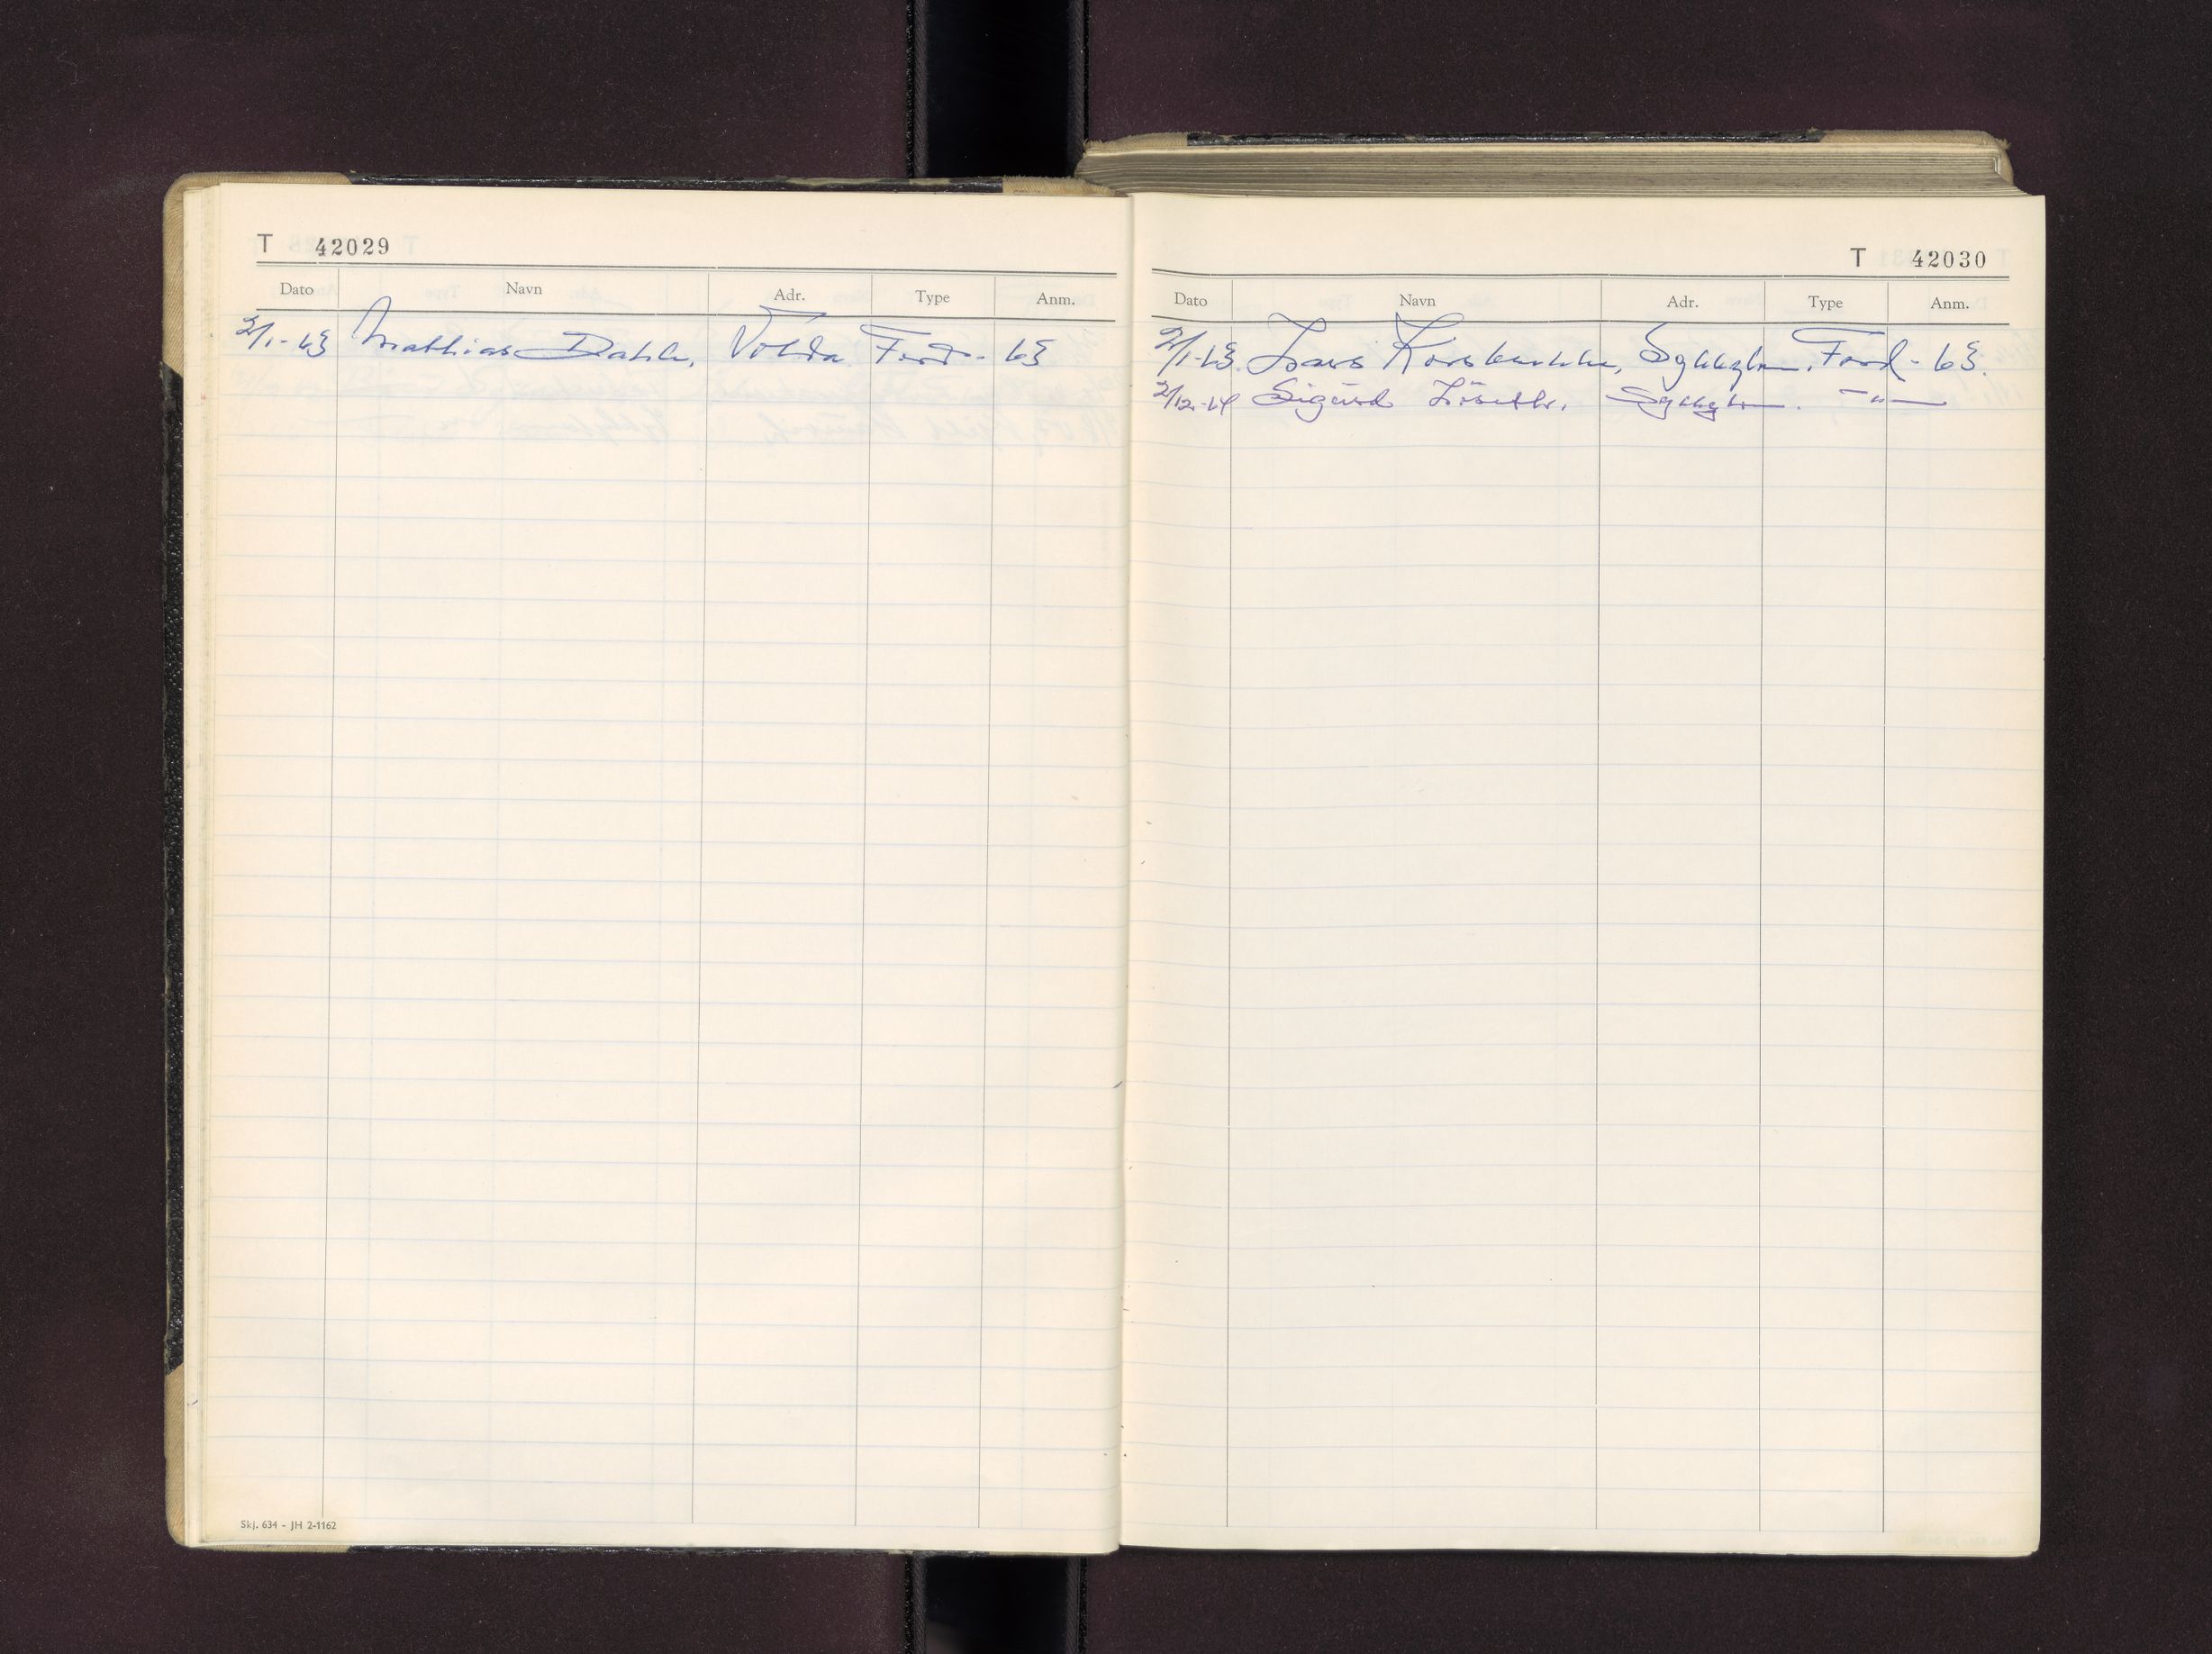 T 42029
Dato Navn Adr. Type Anm.
2/1-63 Mathias Dahle, Volda Ford - 63
Skj. 634 - JH 2-1162
T 42030
Dato Navn Adr. Type Anm.
2/1-63. Lars Korsbrekke, Sykkylven. Ford - 63.
2/12-64 Sigurd Löseth, Sykkylven. -"-